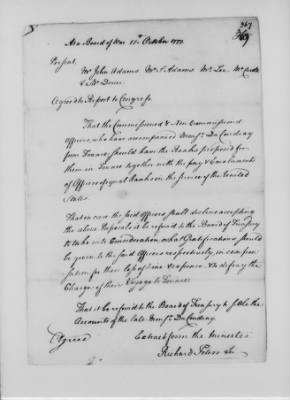 367
369
At a Board of War 11th October 1777.
Present.
Mr John Adams Mr S. Adams Mr Lee
& Mr Duer
Agreed to Report to Congress
That the Commissioned & Non Commissioned
Officers, who have accompanied Monsr. Du Coudray
from France, should have the Ranks proposed for
them in France together with the pay & Emoluments
of Officers of equal Ranks in the service of the United
States.
That in case the said Officers shall decline accepting
the above Proposals it be referred to the Board of Treasury
to take into Consideration what Gratifications should
be given to the said Officers respectively, in compen
sation for their loss of time & expence & to defray the
Charges of their Voyage to France.
That it be referred to the Board of Treasury to settle the
Accounts of the late Monsr. Du Coudray.
Agreed
Extract from the Minutes
Richard Peters Secy